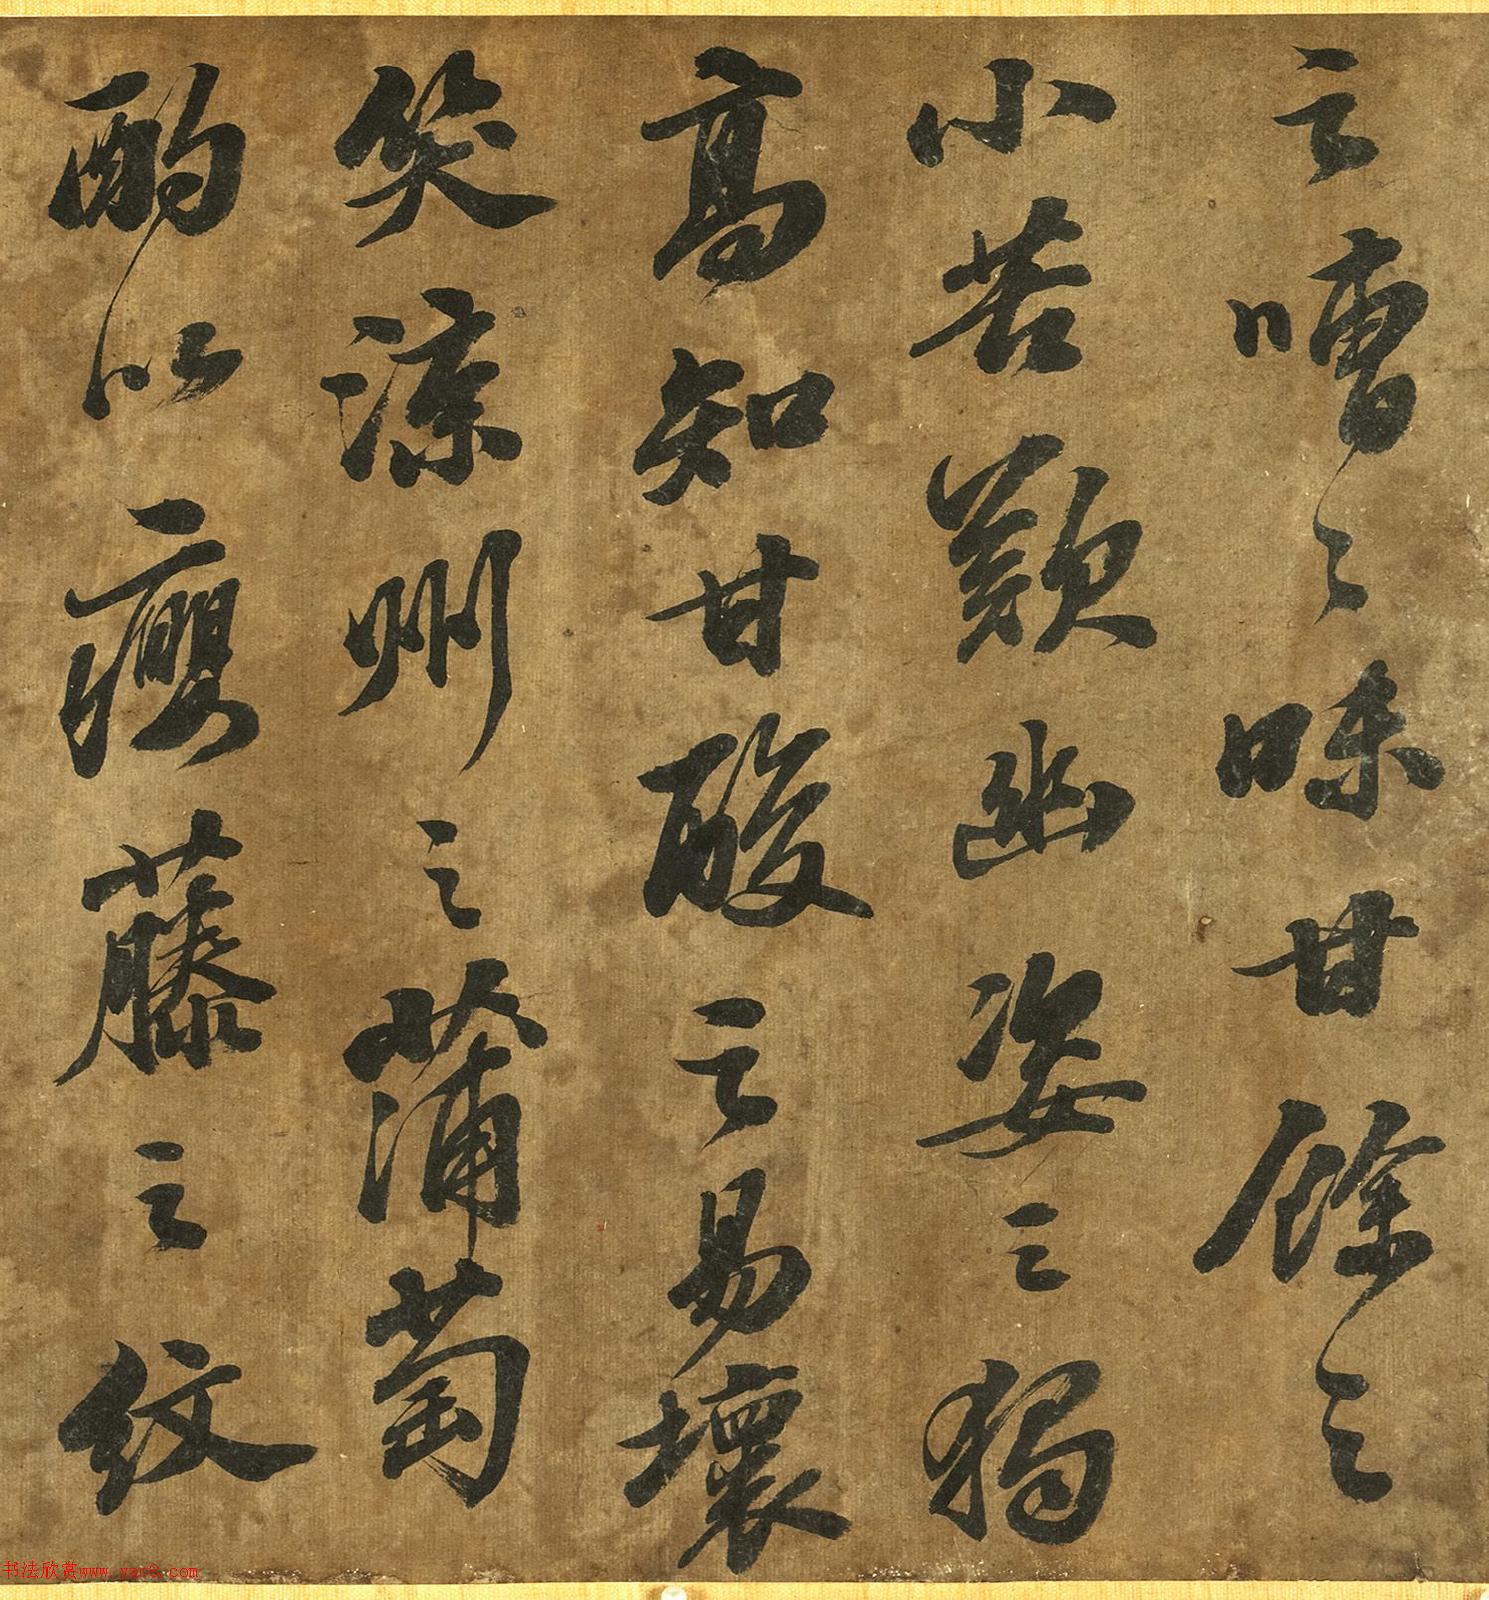 之嘈々味甘餘之
小苦歎幽姿之獨
高知甘酸之易壞
笑涼州之蒲萄
酌以癭藤之紋
书法欣赏www.yac8.com